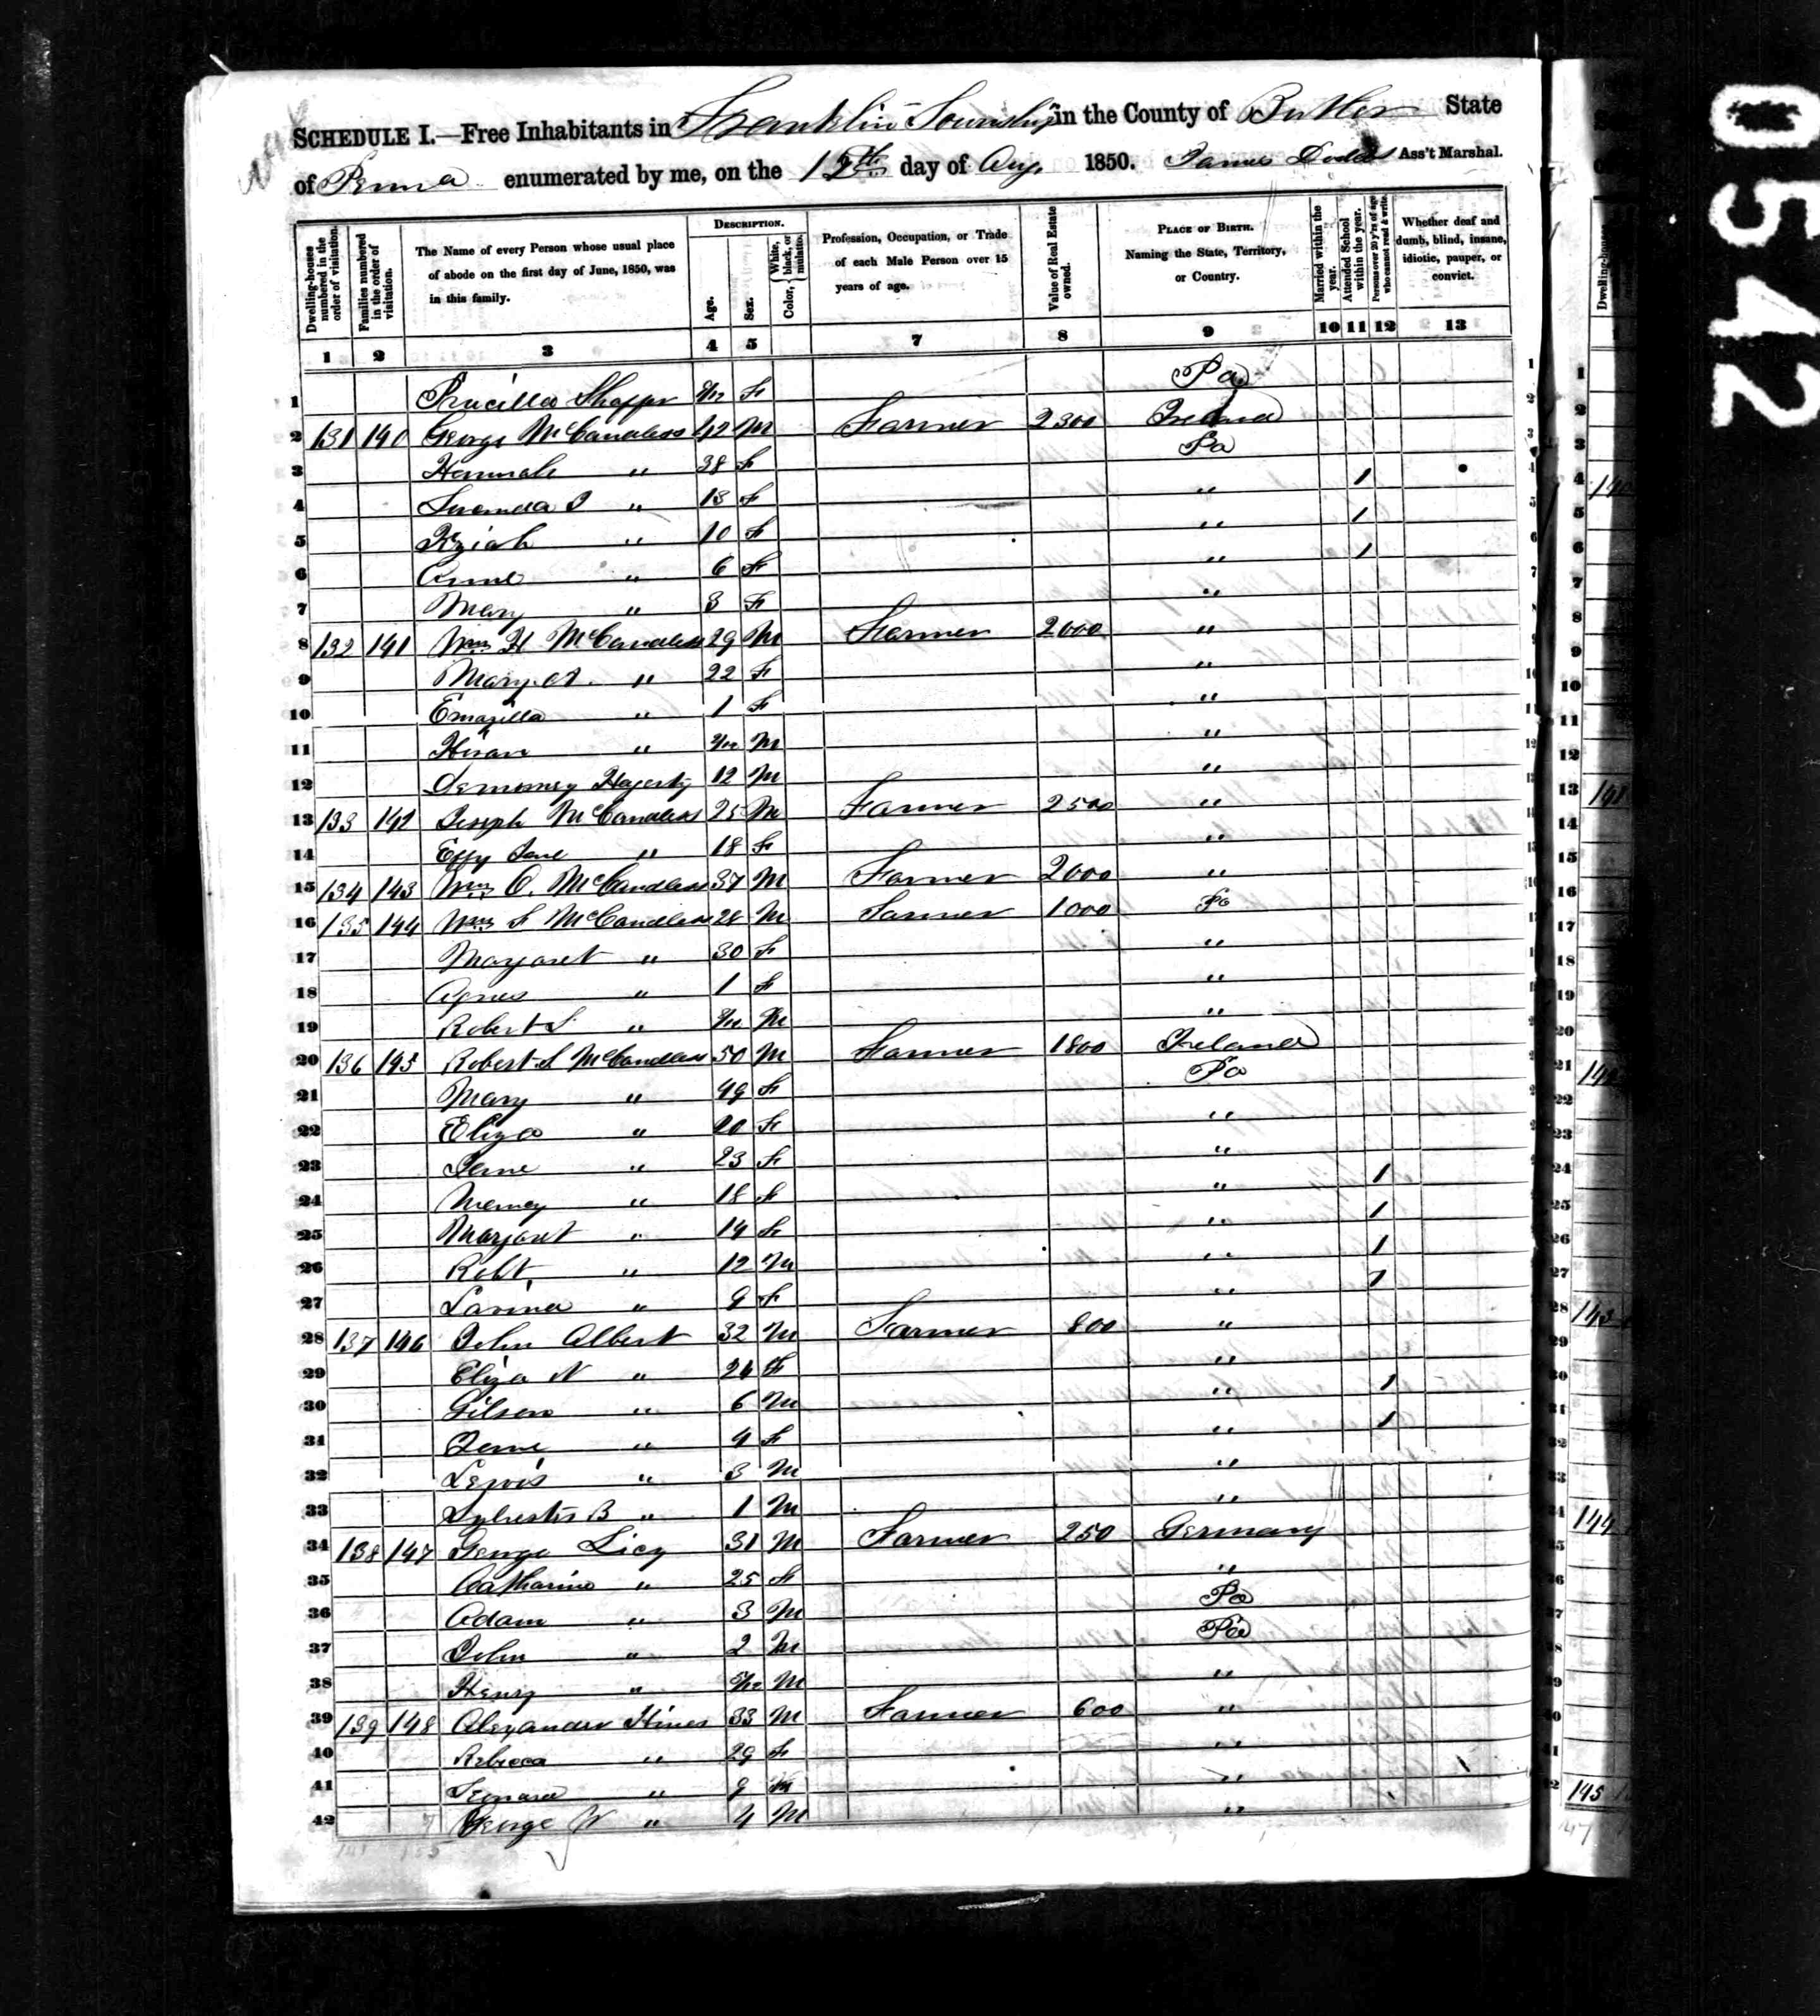 0542
SCHEDULE I.—Free Inhabitants in Franklin Township in the County of Butler State
of Penna enumerated by me, on the 12th day of Aug. 1850. James Dodds Ass't Marshal.
Dwelling-houses numbered in the order of visitation.
Families numbered in the order of visitation.
The Name of every Person whose usual place of abode on the first day of June, 1850, was in this family.
DESCRIPTION.
Age.
Sex.
Color, White, black, or mulatto.
Profession, Occupation, or Trade of each Male Person over 15 years of age.
Value of Real Estate owned.
PLACE OF BIRTH. Naming the State, Territory, or Country.
Married within the year.
Attended School within the year.
Persons over 20 y'rs of age who cannot read & write.
Whether deaf and dumb, blind, insane, idiotic, pauper, or convict.
1 2 3 4 5 7 8 9 10 11 12 13
1 F Pa
2 131 140 George McCandless 42 M Farmer 2300 Ireland
3 Hannah " 38 F Pa
4 13 F " 1
5 Keziah " 10 F " 1
6 Anne " 6 F " 1
7 Mary " 3 F "
8 132 141 Wm H McCandless 29 M Farmer 2000 "
9 Mary A. " 22 F "
10 Emazilla " 1 F "
11 Hiram " M "
12 Hagerty 12 M "
13 133 142 Joseph McCandless 25 M Farmer 2500 "
14 Effy Jane " 18 F "
15 134 143 Wm C. McCandless 37 M Farmer 2000 "
16 135 144 Wm F McCandless 28 M Farmer 1000 Pa
17 Margaret " 30 F "
18 Agnes " 1 F "
19 Robert S " M "
20 136 145 Robert S McCandless 50 M Farmer 1800 Ireland
21 Mary " 49 F Pa
22 Eliza " 20 F "
23 Jane " 23 F "
24 18 F " 1
25 Margaret " 14 F " 1
26 Robt. " 12 M " 1
27 Lavina " 9 F " 1
28 137 146 John Albert 32 M Farmer 800 "
29 Eliza N " F "
30 Gilson " 6 M " 1
31 Jane " 4 F " 1
32 Lewis " 3 M "
33 Sylvester B " 1 M "
34 138 147 George Licy 31 M Farmer 250 Germany
35 Catharine " 25 F "
36 Adam " 3 M Pa
37 John " 2 M Pa
38 Henry " 5/12 M "
39 139 148 Alexander Hines 33 M Farmer 600 "
40 Rebecca " 29 F "
41 " 9 "
42 George W " 4 M "